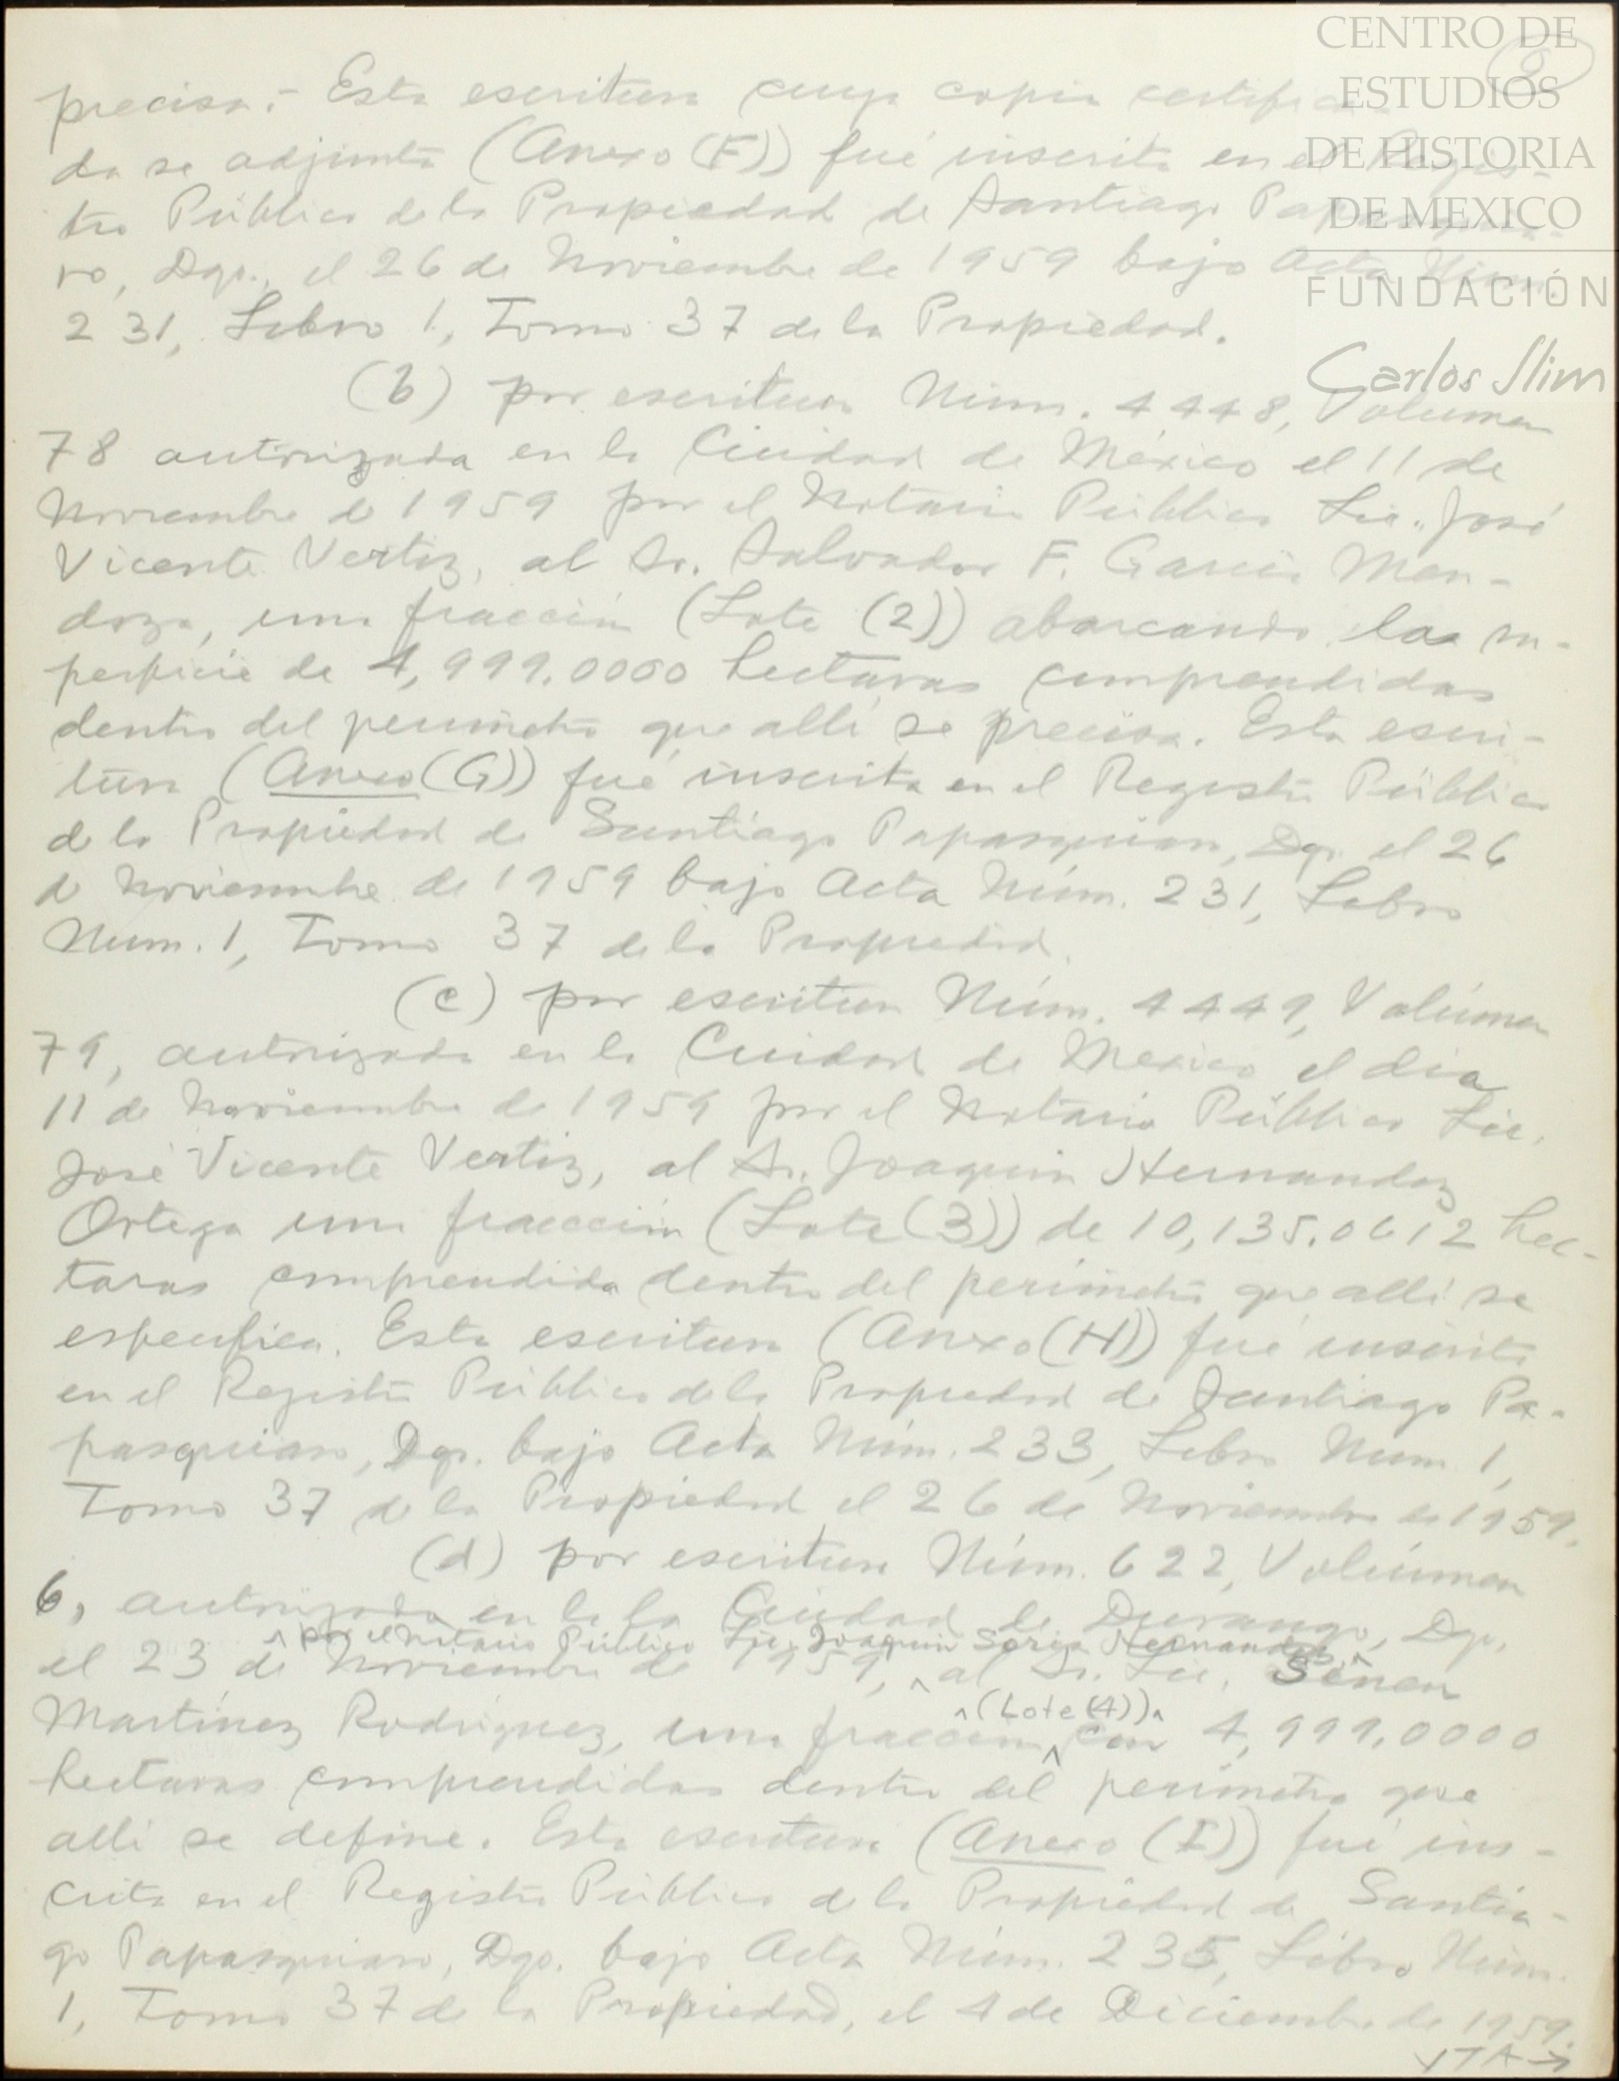 CENTRO DE
ESTUDIOS
DE HISTORIA
DE MEXICO
FUNDACIÓN
Carlos Slim
precisa.- Esta escritura cuya copia certifica
da se adjunta (Anexo (F)) fué inscrita en el Regis-
tro Público de la Propiedad de Santiago Papasquia-
ro, Dgo., el 26 de Noviembre de 1959 bajo Acta Núm.
231, Libro 1, Tomo 37 de la Propiedad.
(b) por escritura Núm. 4448, Volúmen
78 autorizada en la Ciudad de México el 11 de
Noviembre de 1959 por el Notario Público Lic. José
Vicente Vertiz, al Sr. Salvador F. García Men-
doza, una fracción (Lote (2)) abarcando las su-
perficie de 4,999.0000 hectaras comprendidas
dentro del perímetro que allí se precisa. Esta escri-
tura (Anexo (G)) fué inscrita en el Registro Público
de la Propiedad de Santiago Papasquiaro, Dgo. el 26
de Noviembre de 1959 bajo Acta Núm. 231, Libro
Num. 1, Tomo 37 de la Propiedad.
(c) por escritura Núm. 4449, Volúmen
79, autorizada en la Ciudad de Mexico el dia
11 de Noviembre de 1959 por el Notario Público Lic.
José Vicente Vertiz, al Sr. Joaquin Hernandez
Ortega una fracción (Lote (3)) de 10,135.0612 hec-
taras comprendida dentro del perímetro que allí se
especifica. Esta escritura (Anexo (H)) fué inscrita
en el Registro Público de la Propiedad de Santiago Pa-
pasquiaro, Dgo. bajo Acta Núm. 233, Libro Num. 1,
Tomo 37 de la Propiedad el 26 de Noviembre de 1959.
(d) por escritura Núm. 622, Volúmen
6, autorizada en la la Ciudad de Durango, Dgo,
^ por el Notario Público Lic. Joaquin Soria Hernandez, ^
el 23 de Noviembre de 1959, ^ al Sr. Lic. Senen
^(Lote (4))^
Martínez Rodríguez, una fracción ^ con 4,999.0000
hectaras comprendidas dentro del perímetro que
allí se define. Esta escritura (Anexo (I)) fué ins-
crita en el Registro Público de la Propiedad de Santia-
go Papasquiaro, Dgo. bajo Acta Núm. 235, Libro Núm.
1, Tomo 37 de la Propiedad, el 4 de Diciembre de 1959.
VTA →